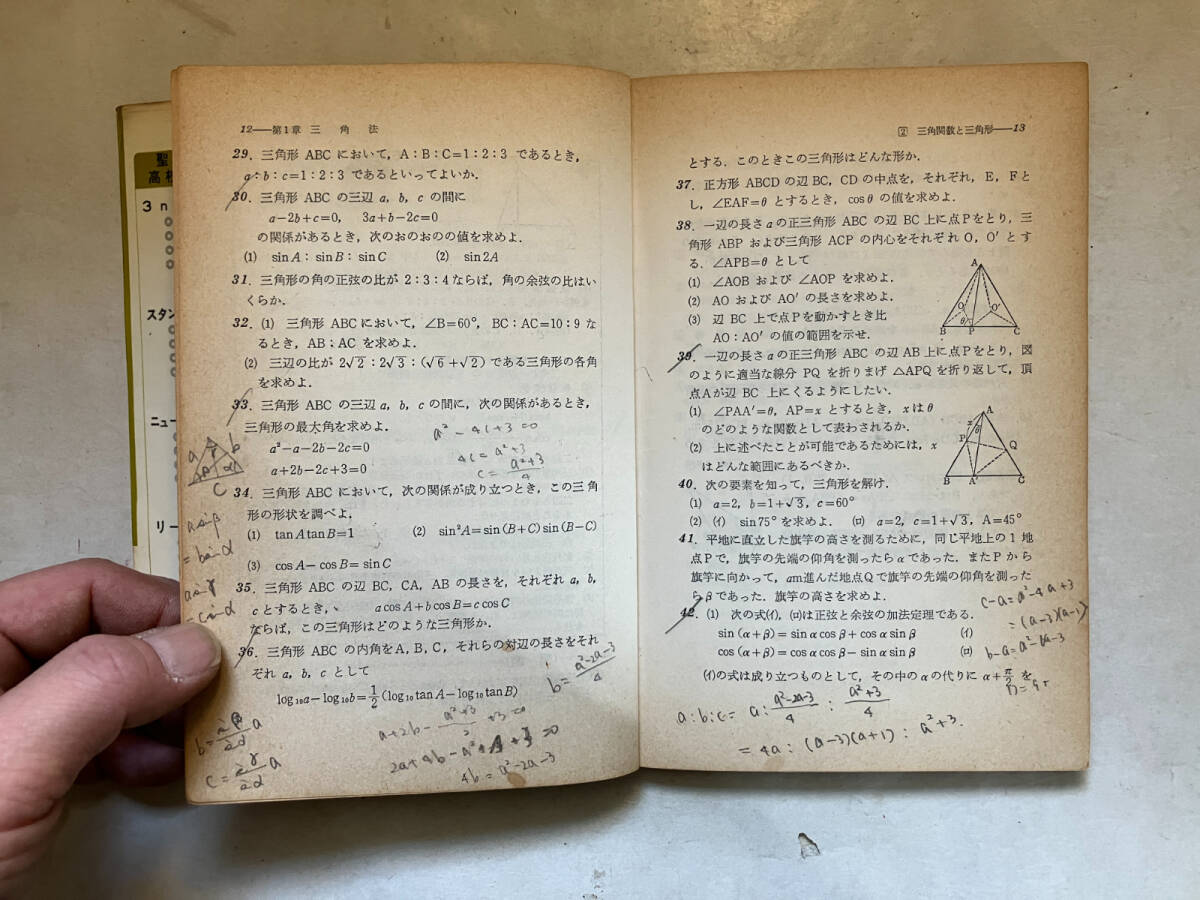 聖
高校
3 n
スタン
ニュー
リー
12—第1章 三 角 法
29. 三角形 ABC において, A:B:C=1:2:3 であるとき,
a:b:c=1:2:3 であるといってよいか.
30. 三角形 ABC の三辺 a, b, c の間に
a−2b+c=0, 3a+b−2c=0
の関係があるとき, 次のおのおのの値を求めよ.
(1) sinA : sinB : sinC (2) sin2A
31. 三角形の角の正弦の比が 2:3:4 ならば, 角の余弦の比はい
くらか.
32. (1) 三角形 ABCにおいて, ∠B=60°, BC:AC=10:9 な
るとき, AB:AC を求めよ.
(2) 三辺の比が 2√2 : 2√3 : (√6+√2) である三角形の各角
を求めよ.
33. 三角形 ABC の三辺 a, b, c の間に, 次の関係があるとき,
三角形の最大角を求めよ.
a²−a−2b−2c=0
a+2b−2c+3=0
a²−4c+3=0
4c=a²+3
c=(a²+3)/4
a b
c
34. 三角形 ABC において, 次の関係が成り立つとき, この三角
形の形状を調べよ.
(1) tanAtanB=1 (2) sin²A=sin(B+C)sin(B−C)
(3) cosA−cosB=sinC
35. 三角形 ABC の辺 BC, CA, AB の長さを, それぞれ a, b,
c とするとき, a cosA+b cosB=c cosC
ならば, この三角形はどのような三角形か.
36. 三角形 ABC の内角をA, B, C, それらの対辺の長さをそれ
ぞれ a, b, c として
log₁₀a−log₁₀b=1/2(log₁₀tanA−log₁₀tanB)
b=(a²−2a−3)/4
a+2b−(a²+3)/2+3=0
4b=a²−2a−3
② 三角関数と三角形—13
とする. このときこの三角形はどんな形か.
37. 正方形 ABCD の辺 BC, CD の中点を, それぞれ, E, F と
し, ∠EAF=θ とするとき, cosθ の値を求めよ.
38. 一辺の長さ a の正三角形 ABC の辺 BC 上に点Pをとり, 三
角形 ABP および三角形 ACP の内心をそれぞれ O, O′ とす
る. ∠APB=θ として
(1) ∠AOB および ∠AOP を求めよ.
(2) AO および AO′ の長さを求めよ.
(3) 辺 BC 上で点Pを動かすとき比
AO:AO′ の値の範囲を示せ.
A
O O′
θ
B P C
39. 一辺の長さ a の正三角形 ABC の辺 AB 上に点Pをとり, 図
のように適当な線分 PQ を折りまげ △APQ を折り返して, 頂
点Aが辺 BC 上にくるようにしたい.
(1) ∠PAA′=θ, AP=x とするとき, x は θ
のどのような関数として表わされるか.
(2) 上に述べたことが可能であるためには, x
はどんな範囲にあるべきか.
A
x θ
P Q
B A′ C
40. 次の要素を知って, 三角形を解け.
(1) a=2, b=1+√3, c=60°
(2) (イ) sin75° を求めよ. (ロ) a=2, c=1+√3, A=45°
41. 平地に直立した旗竿の高さを測るために, 同じ平地上の1地
点Pで, 旗竿の先端の仰角を測ったら α であった. またPから
旗竿に向かって, am進んだ地点Qで旗竿の先端の仰角を測った
ら β であった. 旗竿の高さを求めよ.
42. (1) 次の式(イ), (ロ)は正弦と余弦の加法定理である.
sin (α+β)=sin α cos β+cos α sin β (イ)
cos (α+β)=cos α cos β−sin α sin β (ロ)
(イ)の式は成り立つものとして, その中の α の代りに α+π/2 を
c−a=a²−4a+3
=(a−3)(a−1)
a:b:c= a : (a²−2a−3)/4 : (a²+3)/4
=4a : (a−3)(a+1) : a²+3.